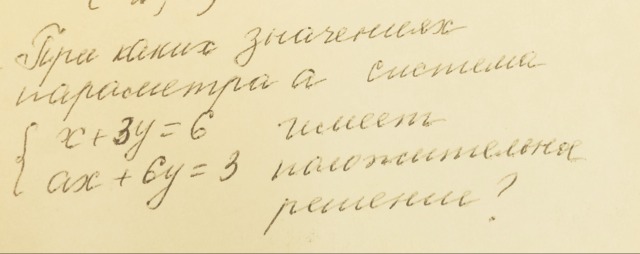 При каких значениях
параметра а система
{ x + 3y = 6 имеет
ax + 6y = 3 положительное
решение?